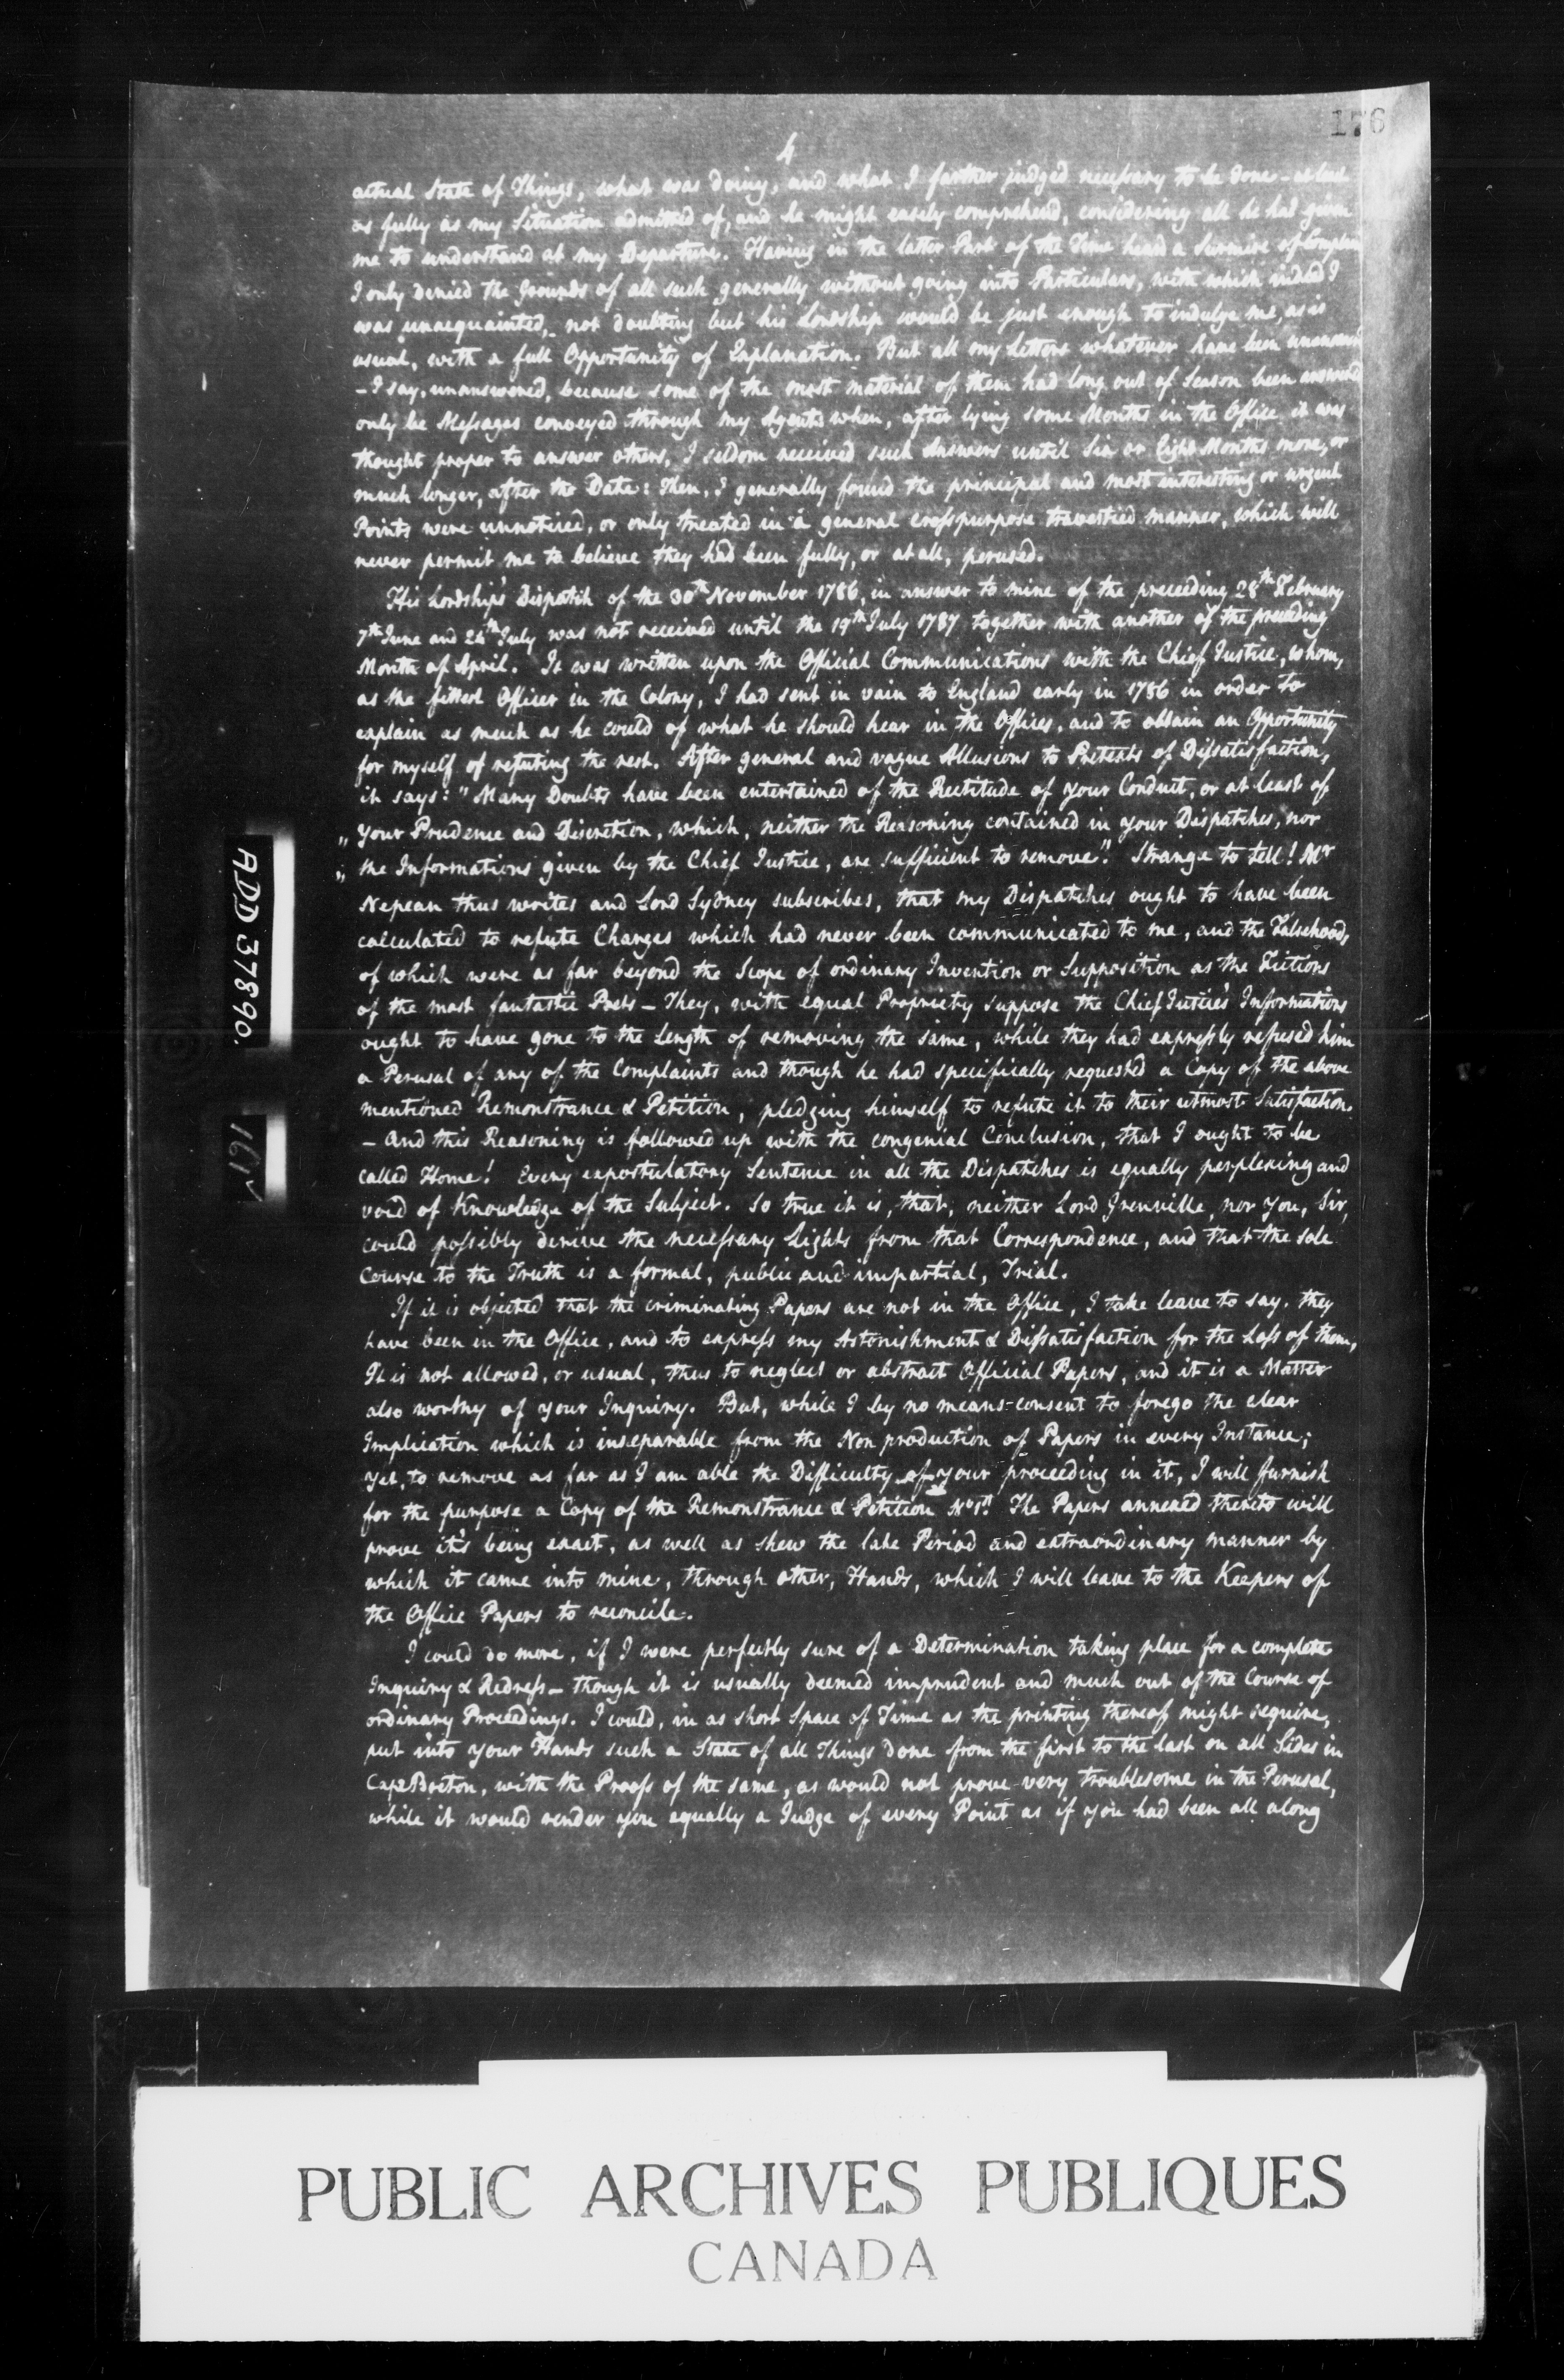 176
4
actual State of Things, what was doing, and what I farther judged necessary to be done - at least
as fully as my Situation admitted of, and he might easily comprehend, considering all he had given
me to understand at my Departure. Having in the latter Part of the Time heard a Surmise of
I only denied the Grounds of all such generally without going into Particulars, with which indeed I
was unacquainted, - not doubting but his Lordship would be just enough to indulge me, as is
usual, with a full Opportunity of Explanation. But all my Letters whatever have been
- I say, unanswered, because some of the most material of them had long out of Season been answered
only be Messages conveyed through my Agents when, after lying some Months in the Office, it was
thought proper to answer others, I seldom received such Answers until Six or Eight Months more, or
much longer, after the Date: Then, I generally found the principal and most interesting or urgent
Points were unnoticed, or only treated in a general crosspurpose travestied manner, which will
never permit me to believe they had been fully, or at all, perused.
His Lordship's Dispatch of the 30th November 1786, in answer to mine of the preceeding 28th February
7th June and 24th July was not received until the 19th July 1787 together with another of the preceding
Month of April. It was written upon the Official Communications with the Chief Justice, whom,
as the fittest Officer in the Colony, I had sent in vain to England early in 1786 in order to
explain as much as he could of what he should hear in the Offices, and to obtain an Opportunity
for myself of refuting the rest. After general and vague Allusions to Pretexts of Dissatisfaction,
it says: "Many Doubts have been entertained of the Rectitude of your Conduct, or at least of
" your Prudence and Discretion, which, neither the Reasoning contained in your Dispatches, nor
" the Informations given by the Chief Justice, are sufficient to remove". Strange to tell! Mr
Nepean thus writes and Lord Sydney subscribes, that my Dispatches ought to have been
calculated to refute Charges which had never been communicated to me, and the Falsehoods
of which were as far beyond the Scope of ordinary Invention or Supposition as the Fictions
of the most fantastic Poets - They, with equal Propriety suppose the Chief Justice's Informations
ought to have gone to the Length of removing the same, while they had expressly refused him
a Perusal of any of the Complaints and though he had specifically requested a Copy of the above
mentioned Remonstrance & Petition, pledging himself to refute it to their utmost Satisfaction.
- And this Reasoning is followed up with the congenial Conclusion, that I ought to be
called Home! Every expostulatory Sentence in all the Dispatches is equally perplexing and
void of Knowledge of the Subject. So true it is, that, neither Lord Grenville, nor you, Sir,
could possibly derive the necessary Lights from that Correspondence, and that the sole
Course to the Truth is a formal, public and impartial, Trial.
If it is objected that the criminating Papers are not in the Office, I take leave to say. they
have been in the Office, and to express my Astonishment & Dissatisfaction for the Loss of them,
It is not allowed, or usual, thus to neglect or abstract Official Papers, and it is a Matter
also worthy of your Inquiry. But, while I by no means consent to forego the clear
Implication which is inseparable from the Non production of Papers in every Instance;
yet, to remove as far as I am able the Difficulty of your proceeding in it, I will furnish
for the purpose a Copy of the Remonstrance & Petition No 1st. The Papers annexed thereto will
prove it's being exact, as well as shew the late Period and extraordinary manner by
which it came into mine, through other, Hands, which I will leave to the Keepers of
the Office Papers to reconcile.
I could do more, if I were perfectly sure of a Determination taking place for a complete
Inquiry & Redress - though it is usually deemed imprudent and much out of the Course of
ordinary Proceedings. I would, in as short Space of Time as the printing thereof might require,
put into your Hands such a State of all Things done from the first to the last on all Sides in
Cape Breton, with the Proofs of the same, as would not prove very troublesome in the Perusal,
while it would render you equally a Judge of every Point as if you had been all along
ADD 37890.
161v
PUBLIC ARCHIVES PUBLIQUES
CANADA